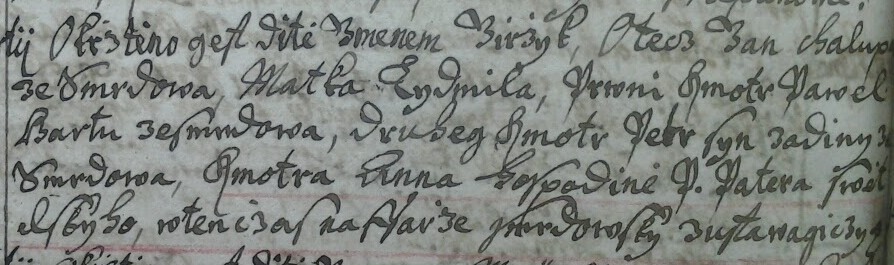 tij Okrzteno gest ditě Zmenem Jirzyk, Otecz Jan chalup
ze Smrdowa, Matka Lydmila, Prwni Kmotr Pawel
Bartu ze smrdowa, druheg Kmotr Petr syn zadiny
Smrdowa, Kmotra Anna hospodině P. Patera swět
elskyho, wten czas na ffarze smrdowsky zustawagiczy